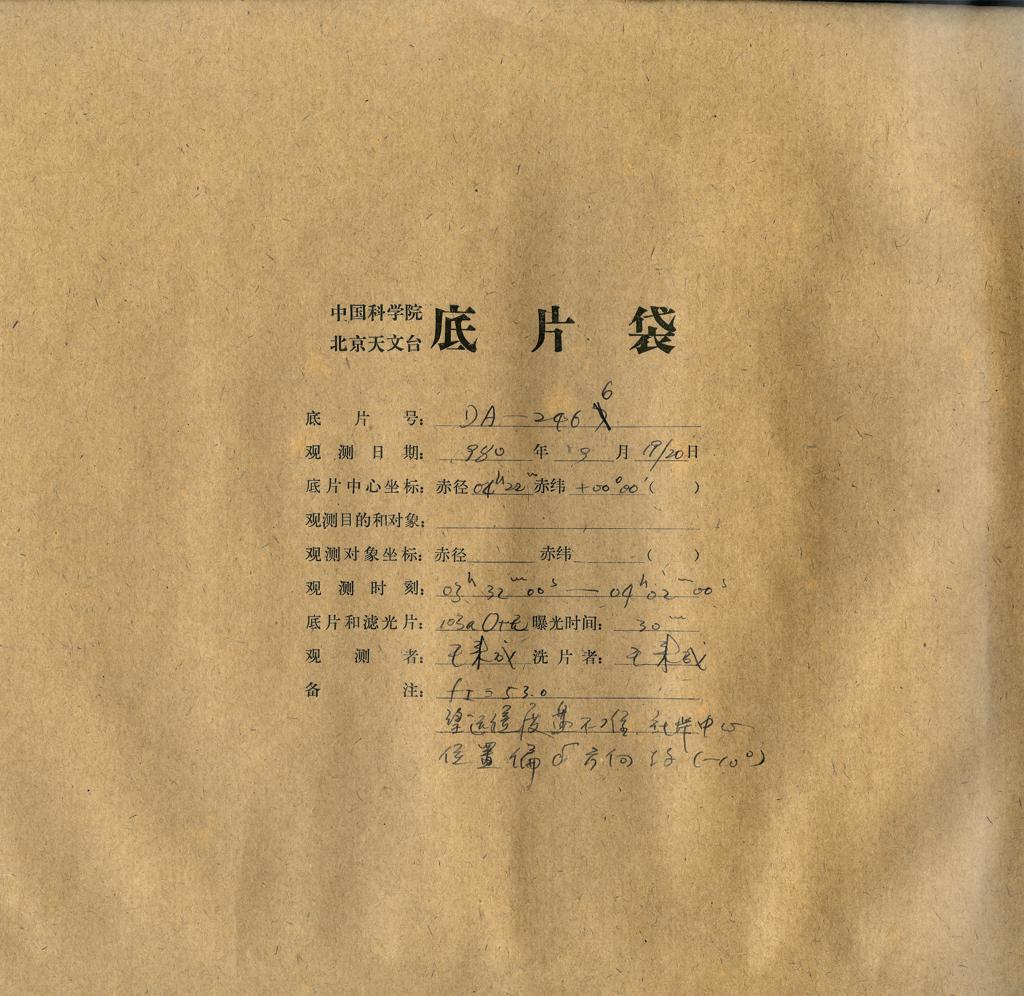 中国科学院
北京天文台
底片袋
底片号： DA-2466
观测日期： 980 年 9 月 19/20 日
底片中心坐标：赤径 04ʰ22ᵐ 赤纬 +00°00′（ ）
观测目的和对象：
观测对象坐标：赤径 赤纬 （ ）
观测时刻： 03ʰ32ᵐ00ˢ — 04ʰ02ᵐ00ˢ
底片和滤光片：103aO+无 曝光时间：30ᵐ
观测者： 洗片者：
备注： fI=53.0
度盘不准 中心
位置偏δ方向 (-10°)